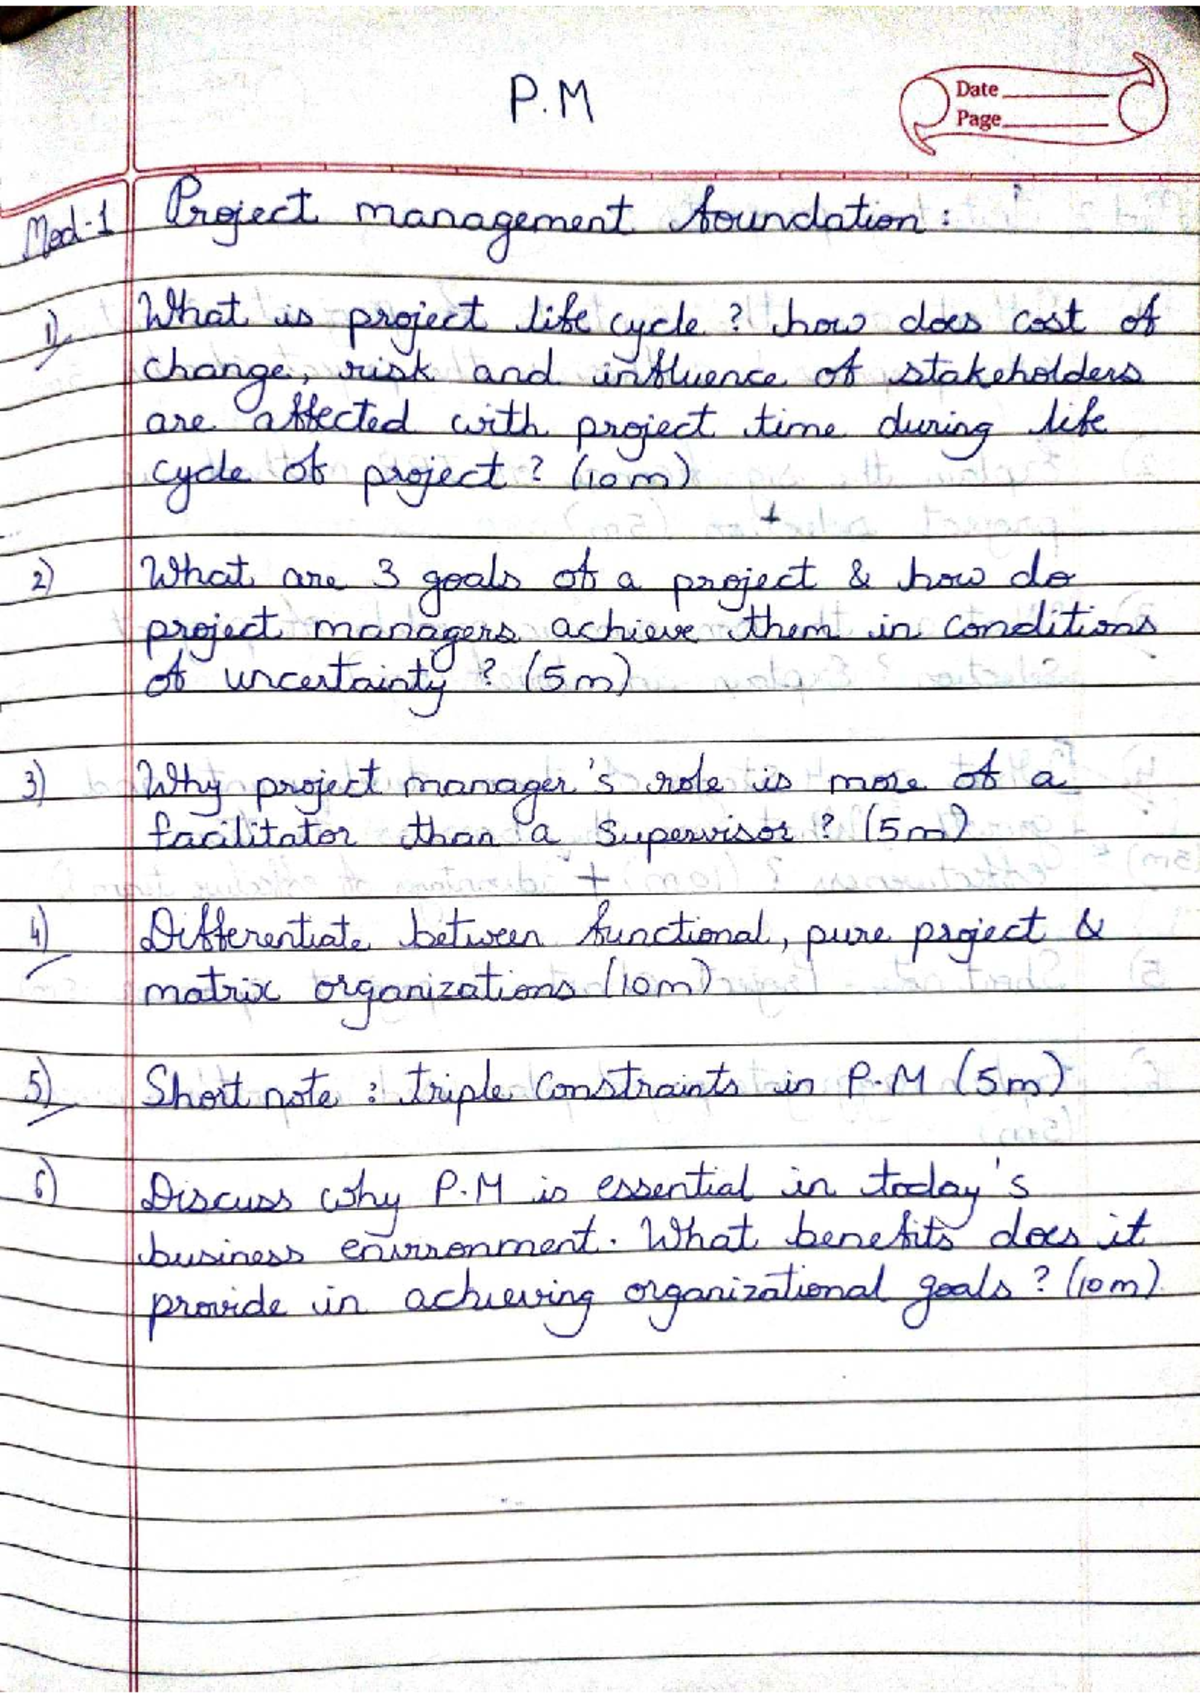 P.M
Date
Page
Mod-1 Project management foundation :
1) What is project life cycle ? how does cost of
change, risk and influence of stakeholders
are affected with project time during life
cycle of project ? (10m)
+
2) What are 3 goals of a project & how do
project managers achieve them in conditions
of uncertainty ? (5m)
3) Why project manager's role is more of a
facilitator than a supervisor ? (5m)
+
4) Differentiate between functional, pure project &
matrix organizations (10m)
5) Short note : triple constraints in P.M (5m)
6) Discuss why P.M is essential in today's
business environment. What benefits does it
provide in achieving organizational goals ? (10m)